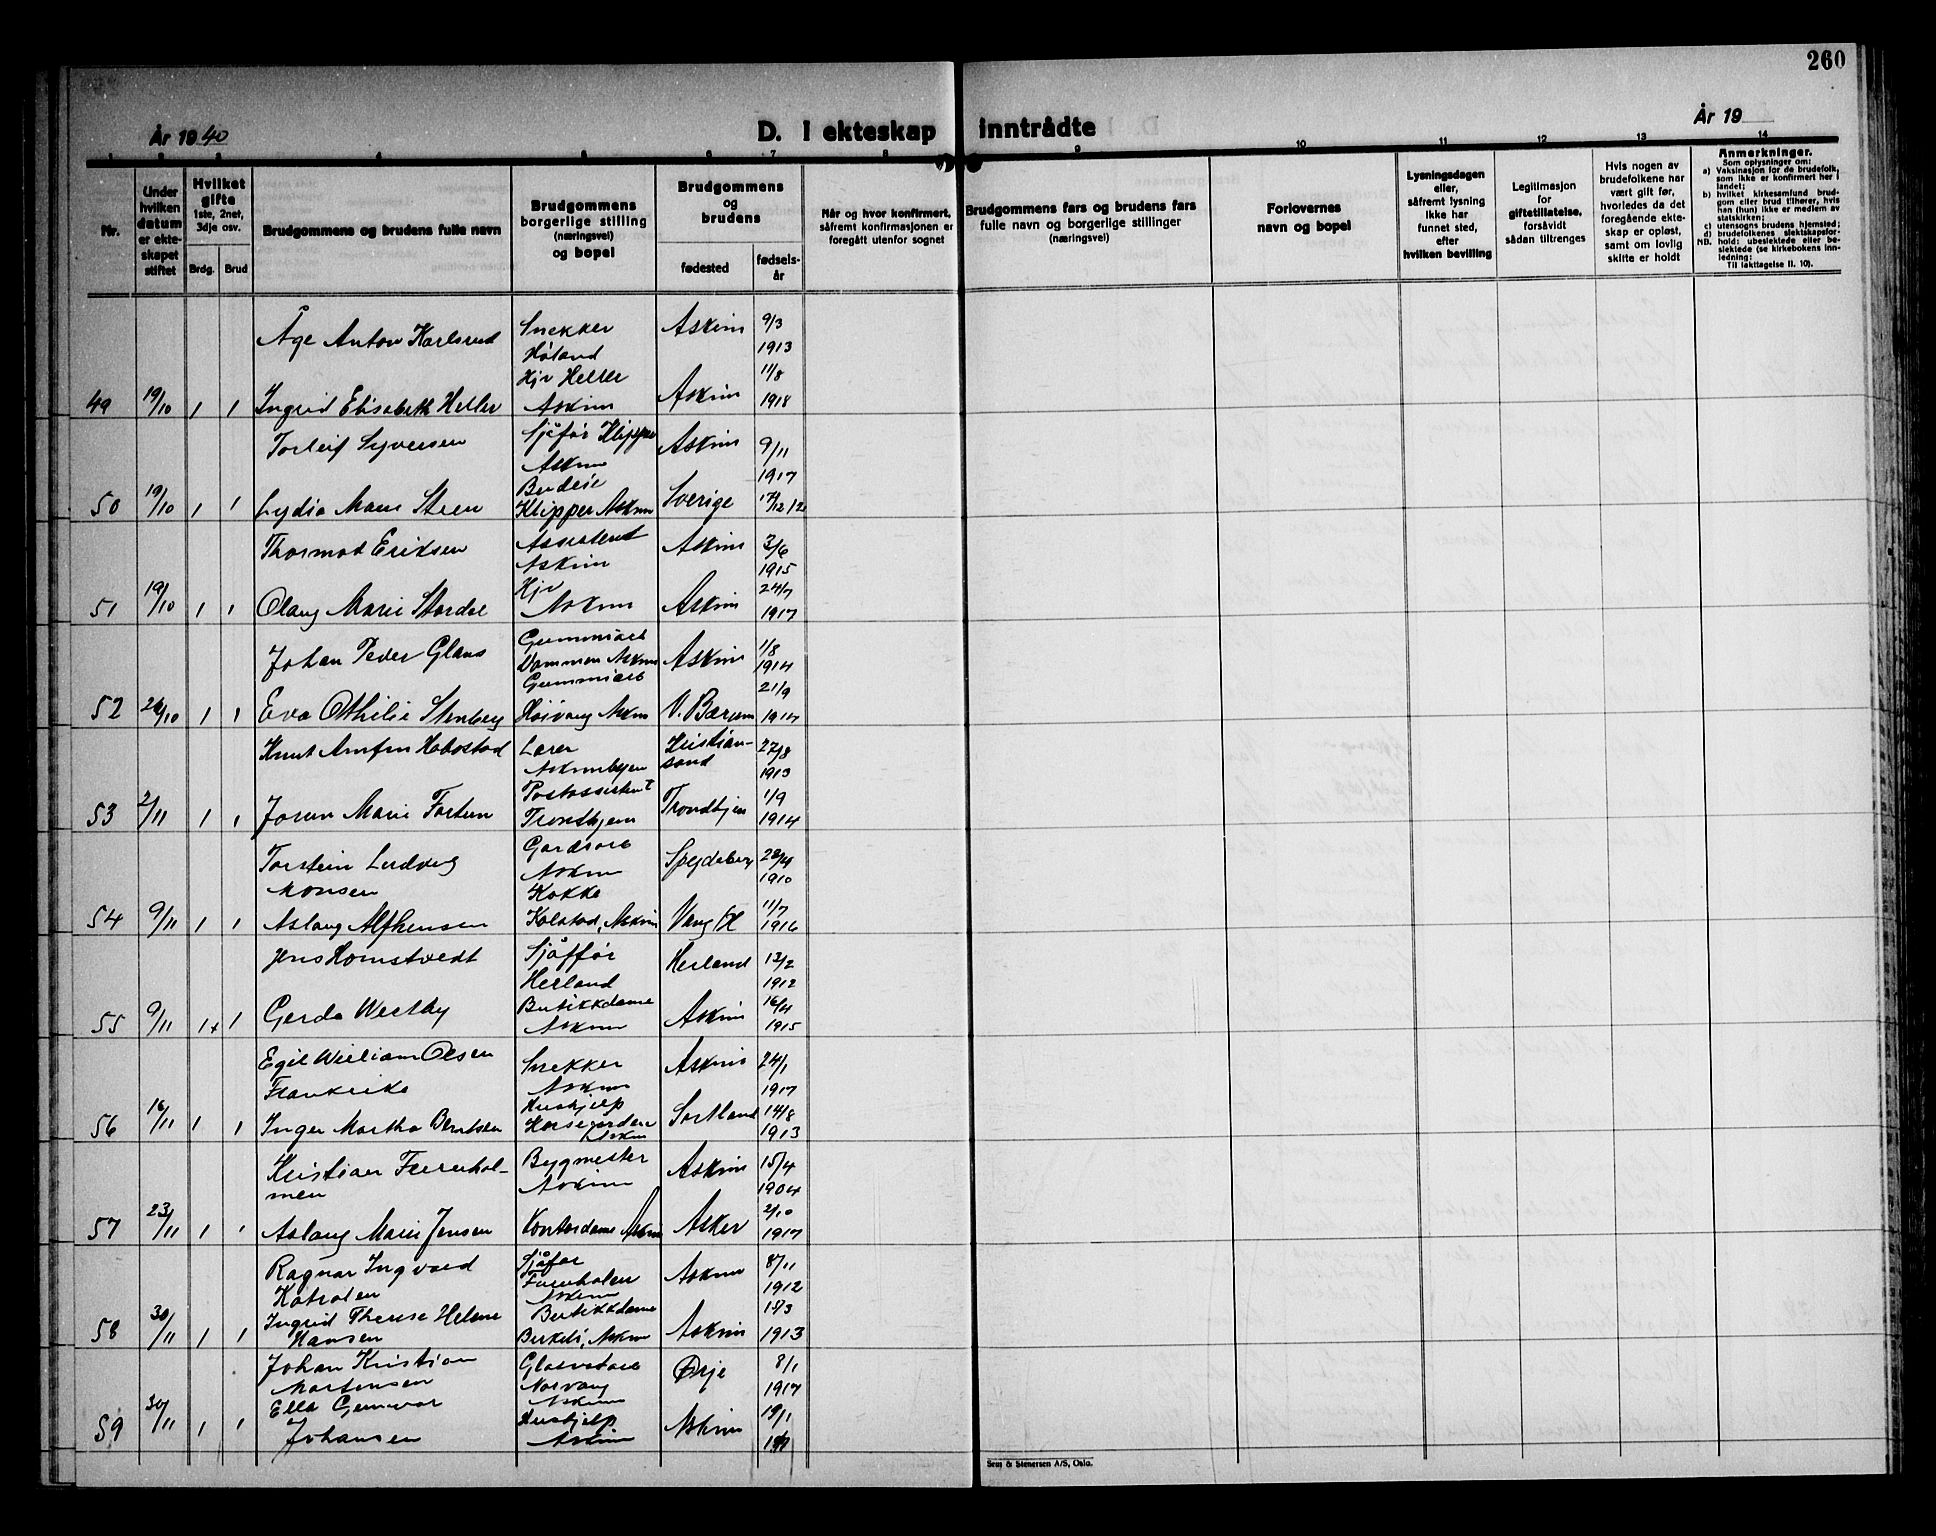 260
År 1940
D. I ekteskap inntrådte
År 19
1 2 3 4 5 6 7 8 9 10 11 12 13 14
Nr.
Under hvilken datum er ekteskapet stiftet
Hvilket gifte
1ste, 2net, 3dje osv.
Brdg. Brud
Brudgommens og brudens fulle navn
Brudgommens borgerlige stilling (næringsvei) og bopel
Brudgommens og brudens
fødested
fødselsår
Når og hvor konfirmert, såfremt konfirmasjonen er foregått utenfor sognet
Brudgommens fars og brudens fars fulle navn og borgerlige stillinger (næringsvei)
Forlovernes navn og bopel
Lysningsdagen eller, såfremt lysning ikke har funnet sted, efter hvilken bevilling
Legitimasjon for giftetillatelse, forsåvidt sådan tiltrenges
Hvis nogen av brudefolkene har vært gift før, hvorledes da det foregående ekteskap er opløst, samt om lovlig skifte er holdt
Anmerkninger.
Som oplysninger om:
a) Vaksinasjon for de brudefolk, som ikke er konfirmert her i landet;
b) hvilket kirkesamfund brudgom eller brud tilhører, hvis han (hun) ikke er medlem av statskirken;
c) utensogns brudens hjemsted;
d) brudefolkenes slektskapsforhold: ubeslektede eller beslektede (se kirkebokens innledning:
NB. Til iakttagelse II. 10).
Åge Anton Karlsrud Snekker Høland Askim 9/3 1913
49 19/10 1 1 Ingrid Elisabeth Heller Hjv Heller Askim Askim 11/8 1918
Torleif Syversen Sjåfør Klipper Askim Askim 9/11 1917
50 19/10 1 1 Lydia Marie Budeie Klipper Askim Sverige
Thormod Eriksen Assistent Askim Askim 3/6 1915
51 19/10 1 1 Olaug Marie Stordal Hjv Askim Askim 24/7 1917
Johan Peder Glans Gummiarb Dammen Askim Askim 1/8 1914
52 1 1 Eva Othilie Stenberg Gummiarb Høivang Askim V. Bærum 21/9 1914
Knut Arnfin Askimbyen Lærer Kristiansand 27/8 1913
53 2/11 1 1 Jorun Marie Postassistent Trondhjem Trondhjem 1/9 1914
Torstein Ludvig Monsen Gardsarb Askim Spydeberg 28/4 1910
54 9/11 1 1 Aslaug Alfhensen Kokke Kolstad, Askim Vang /H 11/7 1916
Jens Homstvedt Sjåffør Herland Herland 13/2 1912
55 9/11 1+ 1 Gerda Westby Butikkdame Askim Askim 16/4 1915
Egil William Olsen Frankrike Snekker Askim Askim 24/1 1917
56 16/11 1 1 Inger Martha Berntsen Hushjelp Askim Sortland 14/8 1913
Kristian Furuholmen Bygmester Askim Askim 15/4 1904
57 23/11 1 1 Aslaug Marie Jensen Kontordame Askim Asker 2/10 1917
Ragnar Ingvald Sjåfør Askim Askim 8/11 1912
58 30/11 1 1 Ingrid Therese Helene Hansen Butikkdame Birkeli, Askim Askim 1913
Johan Kristian Martensen Norvang Askim Ørje 8/1 1917
59 30/11 1 1 Ella Gunvor Johansen Hushjelp Askim Askim 19/1
Sem & Stenersen A/S, Oslo.